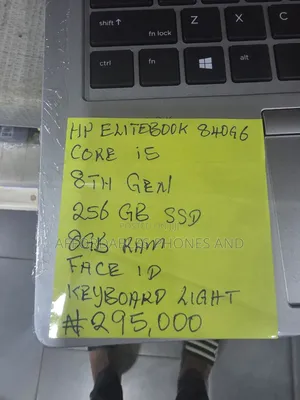 shift
fn lock
ctrl
fn
alt
HP ELITEBOOK 840G6
CORE i5
8TH GEN
256 GB SSD
8GB RAM
PHONES AND
FACE ID
KEYBOARD LIGHT
₦295,000